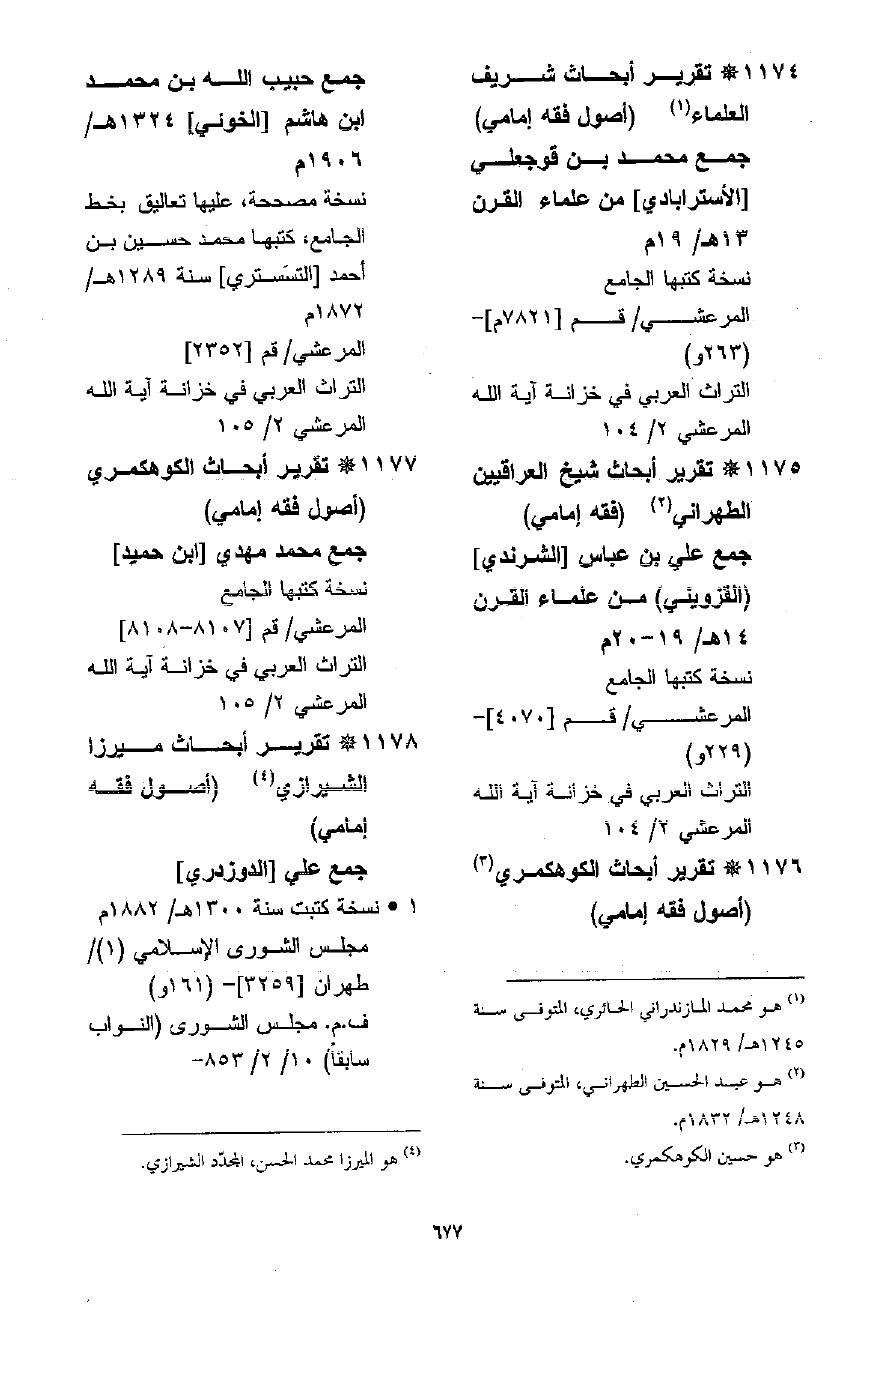 ١١٧٤ * تقرير أبحاث شريف
العلماء(١) (أصول فقه إمامي)
جمع محمد بن قوجعلي
[الأسترابادي] من علماء القرن
١٣هـ/ ١٩م
نسخة كتبها الجامع
المرعشي/ قم [٧٨٢١م]-
(٢٦٣و)
التراث العربي في خزانة آية الله
المرعشي ٢/ ١٠٤
١١٧٥ * تقرير أبحاث شيخ العراقيين
الطهراني(٢) (فقه إمامي)
جمع علي بن عباس [الشرندي]
(القزويني) من علماء القرن
١٤هـ/ ١٩-٢٠م
نسخة كتبها الجامع
المرعشي/ قم [٤٠٧٠]-
(٢٢٩و)
التراث العربي في خزانة آية الله
المرعشي ٢/ ١٠٤
١١٧٦ * تقرير أبحاث الكوهكمري(٣)
(أصول فقه إمامي)
(١) هو محمد المازندراني الحائري، المتوفى سنة
١٢٤٥هـ/ ١٨٢٩م.
(٢) هو عبد الحسين الطهراني، المتوفى سنة
١٢٤٨هـ/ ١٨٣٢م.
(٣) هو حسين الكوهكمري.
جمع حبيب الله بن محمد
ابن هاشم [الخوني] ١٣٢٤هـ/
١٩٠٦م
نسخة مصححة، عليها تعاليق بخط
الجامع، كتبها محمد حسين بن
أحمد [التستري] سنة ١٢٨٩هـ/
١٨٧٢م
المرعشي/ قم [٢٣٥٢]
التراث العربي في خزانة آية الله
المرعشي ٢/ ١٠٥
١١٧٧ * تقرير أبحاث الكوهكمري
(أصول فقه إمامي)
جمع محمد مهدي [ابن حميد]
نسخة كتبها الجامع
المرعشي/ قم [٨١٠٧-٨١٠٨]
التراث العربي في خزانة آية الله
المرعشي ٢/ ١٠٥
١١٧٨ * تقرير أبحاث ميرزا
الشيرازي(٤) (أصول فقه
إمامي)
جمع علي [الدوزدري]
١ • نسخة كتبت سنة ١٣٠٠هـ/ ١٨٨٢م
مجلس الشورى الإسلامي (١)/
طهران [٣٢٥٩]- (١٦١و)
ف.م. مجلس الشورى (النواب
سابقاً) ١٠/ ٢/ ٨٥٣-
(٤) هو الميرزا محمد الحسن، المجدّد الشيرازي.
٦٧٧